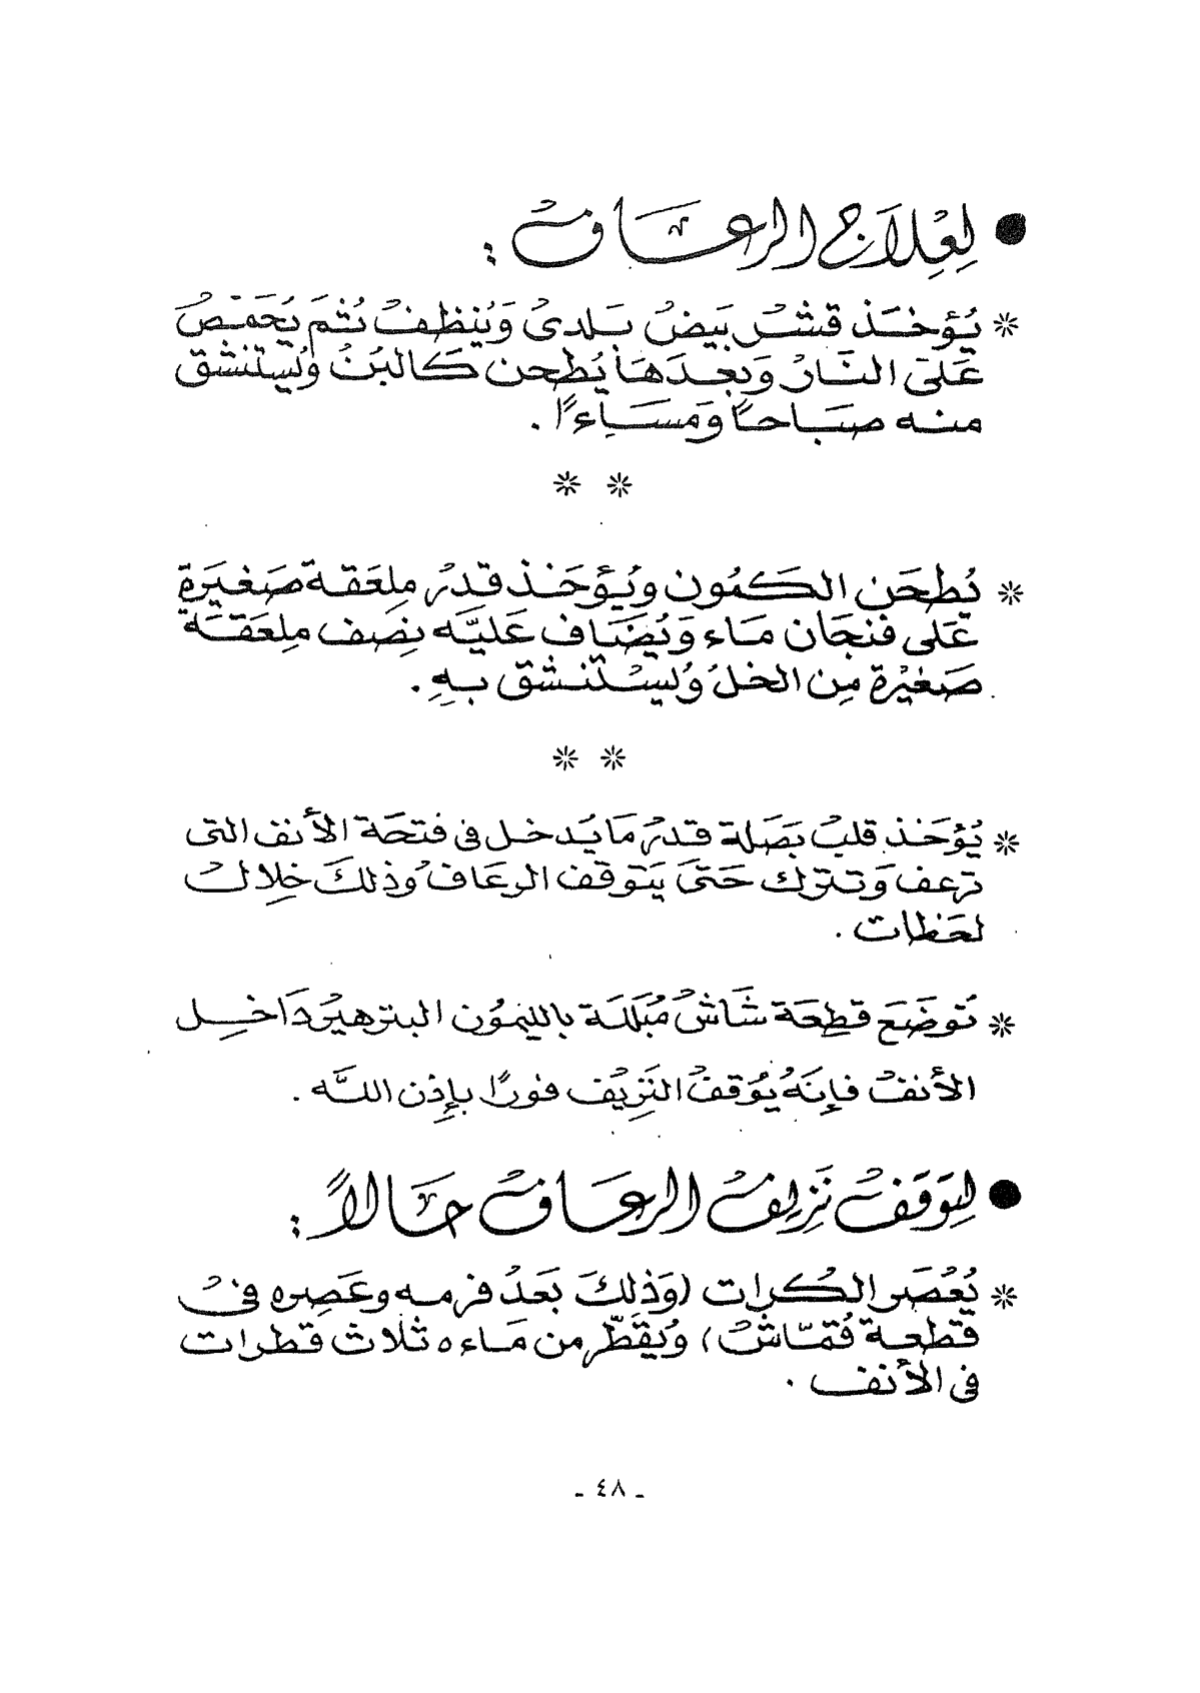 ● لِعِلَاج الرعَاف :
* يُؤخَذ قشر بَيض بَلدى وَيُنظف ثُم يُحَمّص
عَلىَ النَار وَبعدَهَا يُطحن كَالبُن وَيُستنشق
منه صبَاحاً وَمَسَاءاً .
* *
* يُطحَن الكَمُون ويُؤخَذ قَدر مِلعَقة صَغيَرة
عَلى فنجَان مَاء وَيُضَاف عَليَه نِصف مِلعَقَة
صَغيْرة مِن الخل وَيُستنشق بهِ .
* *
* يُؤخَذ قلب بَصَلة قَدر مَا يَدخل فى فتحَة الأنف التى
ترعف وَتترك حَتىَ يَتوقف الرعَاف وَذلكَ خِلال
لحَظات .
* تُوضَع قطِعَة شَاش مُبَللَة بالليَمُون البنزهير دَاخِل
الأنف فإنَهُ يُوَقف النَزِيْف فورًا بإِذن اللَّه .
● لِتوَقف نَزِيف الرعَاف حَالاً :
* يُعْصَر الكُرات (وَذلِكَ بَعَد فرمه وعَصِره فى
قطعة قُمّاش) وَيُقَطّر من مَاءه ثلاث قطرات
فى الأنف .
- ٤٨ -